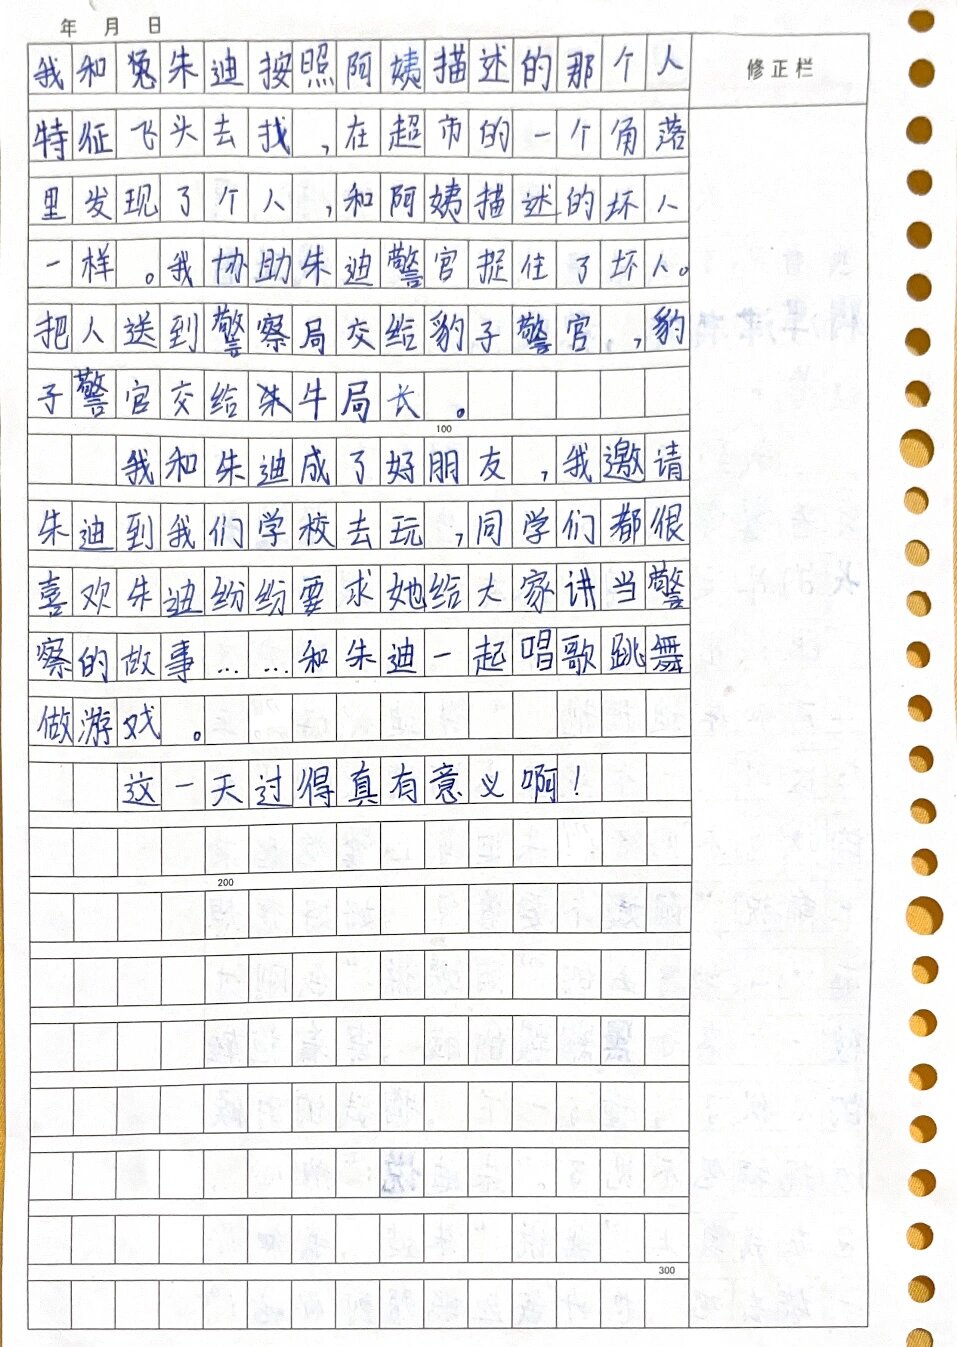 年 月 日
修正栏
我和兔朱迪按照阿姨描述的那个人
特征飞头去找,在超市的一个角落
里发现了个人,和阿姨描述的坏人
一样。我协助朱迪警官捉住了坏人。
把人送到警察局交给豹子警官,豹
子警官交给朱牛局长。
100
我和朱迪成了好朋友,我邀请
朱迪到我们学校去玩,同学们都很
喜欢朱迪纷纷要求她给大家讲当警
察的故事……和朱迪一起唱歌跳舞
做游戏。
这一天过得真有意义啊!
200
300